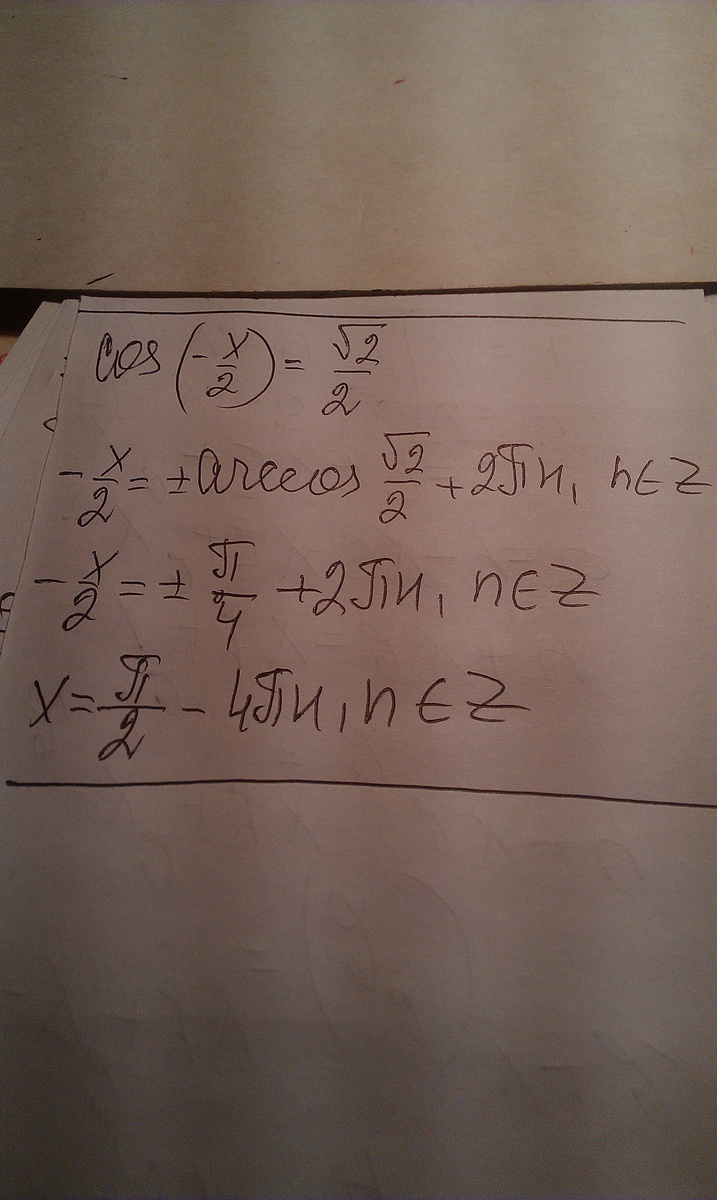 cos (-x/2) = √2/2
-x/2 = ± arccos √2/2 + 2πn, n∈Z
-x/2 = ± π/4 + 2πn, n∈Z
x = π/2 - 4πn, n∈Z